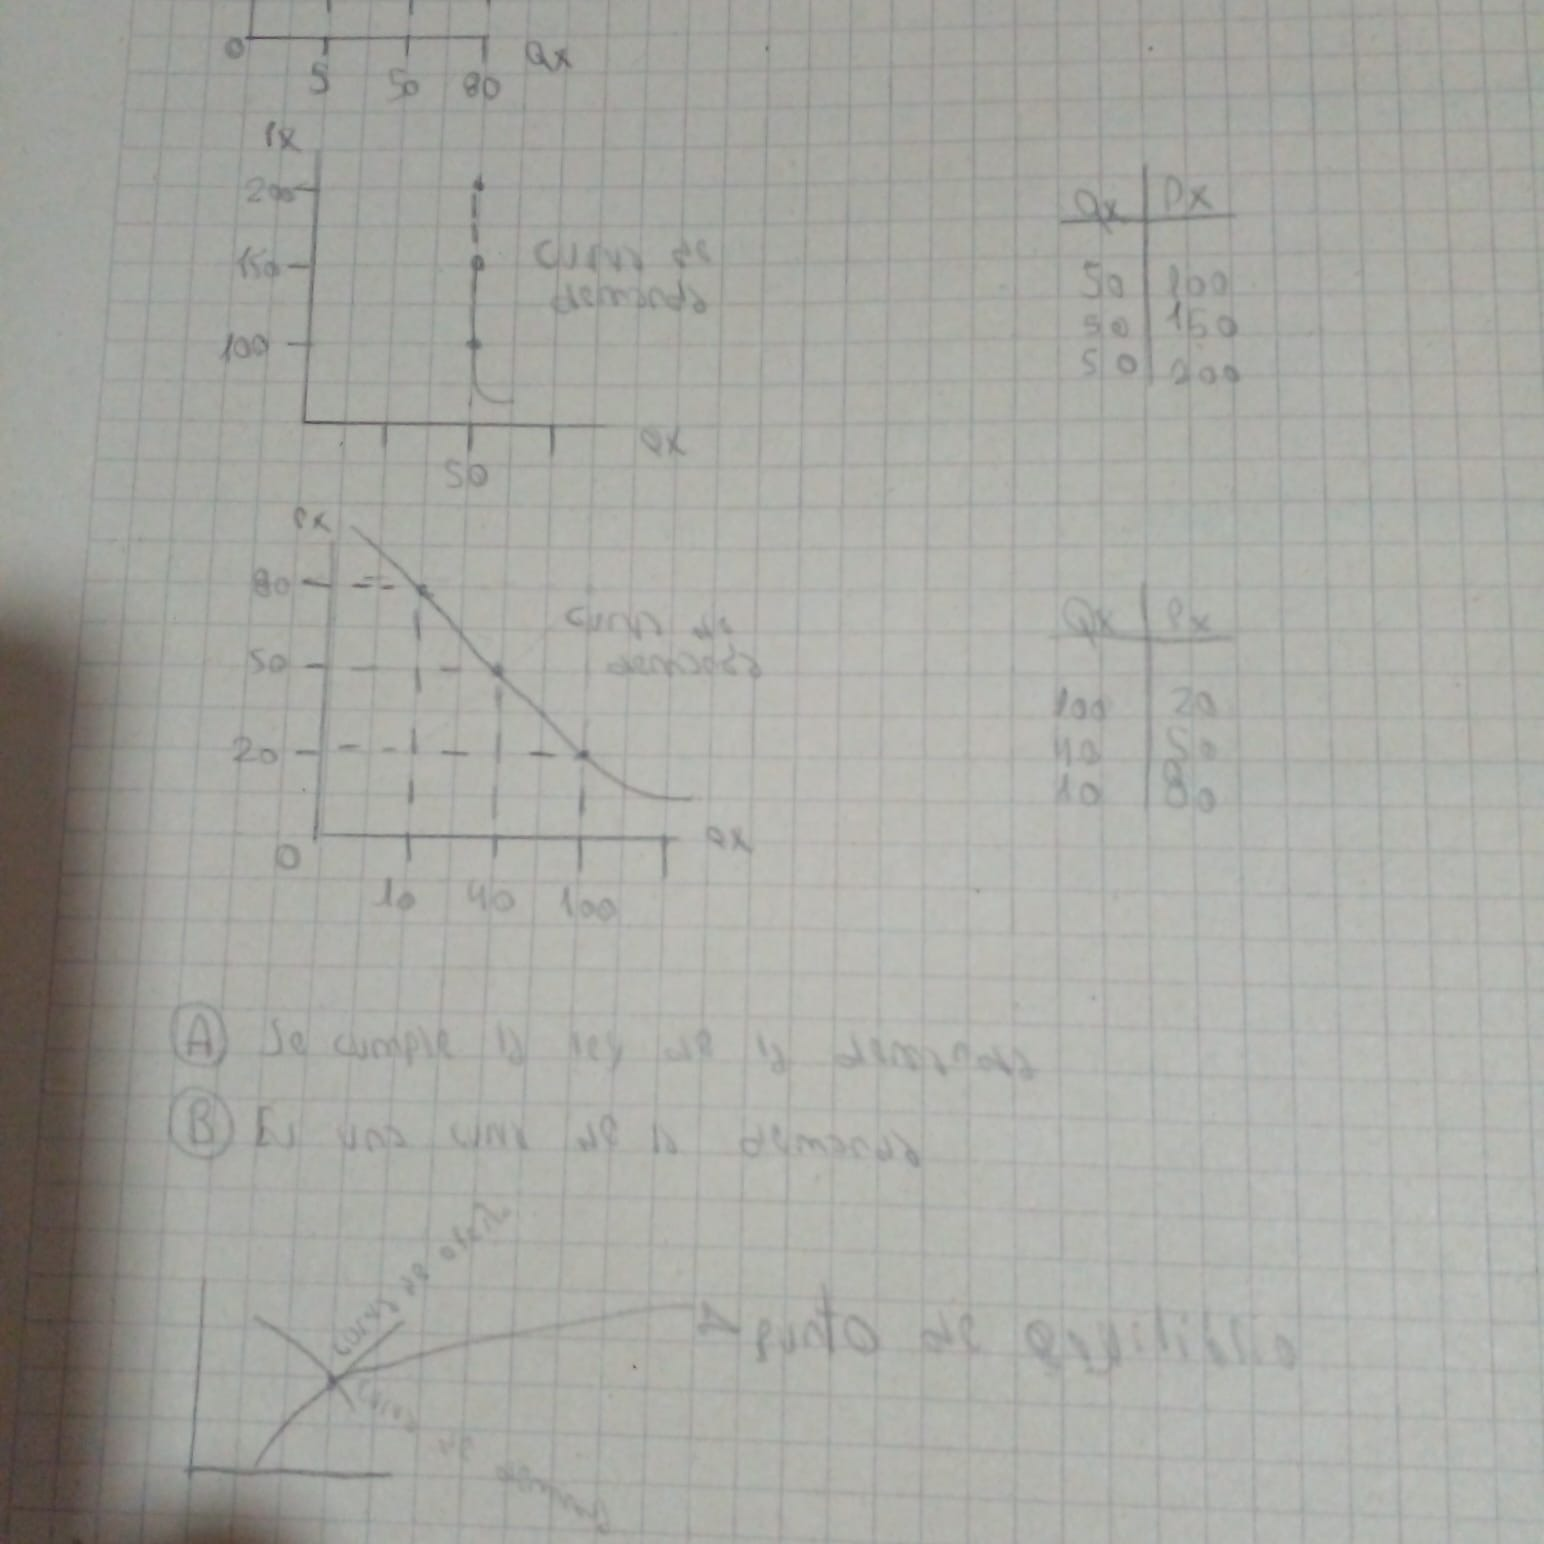 0 5 50 80 Qx
Px
200
150
100
curva de
demanda
50
Qx
Qx Px
50 100
50 150
50 200
Px
80
50
20
0
curva de
demanda
10 40 100
Qx
Qx Px
100 20
40 50
10 80
A Se cumple la ley de la demanda
B Es una curva de la demanda
curva de oferta
curva de demanda
Punto de equilibrio